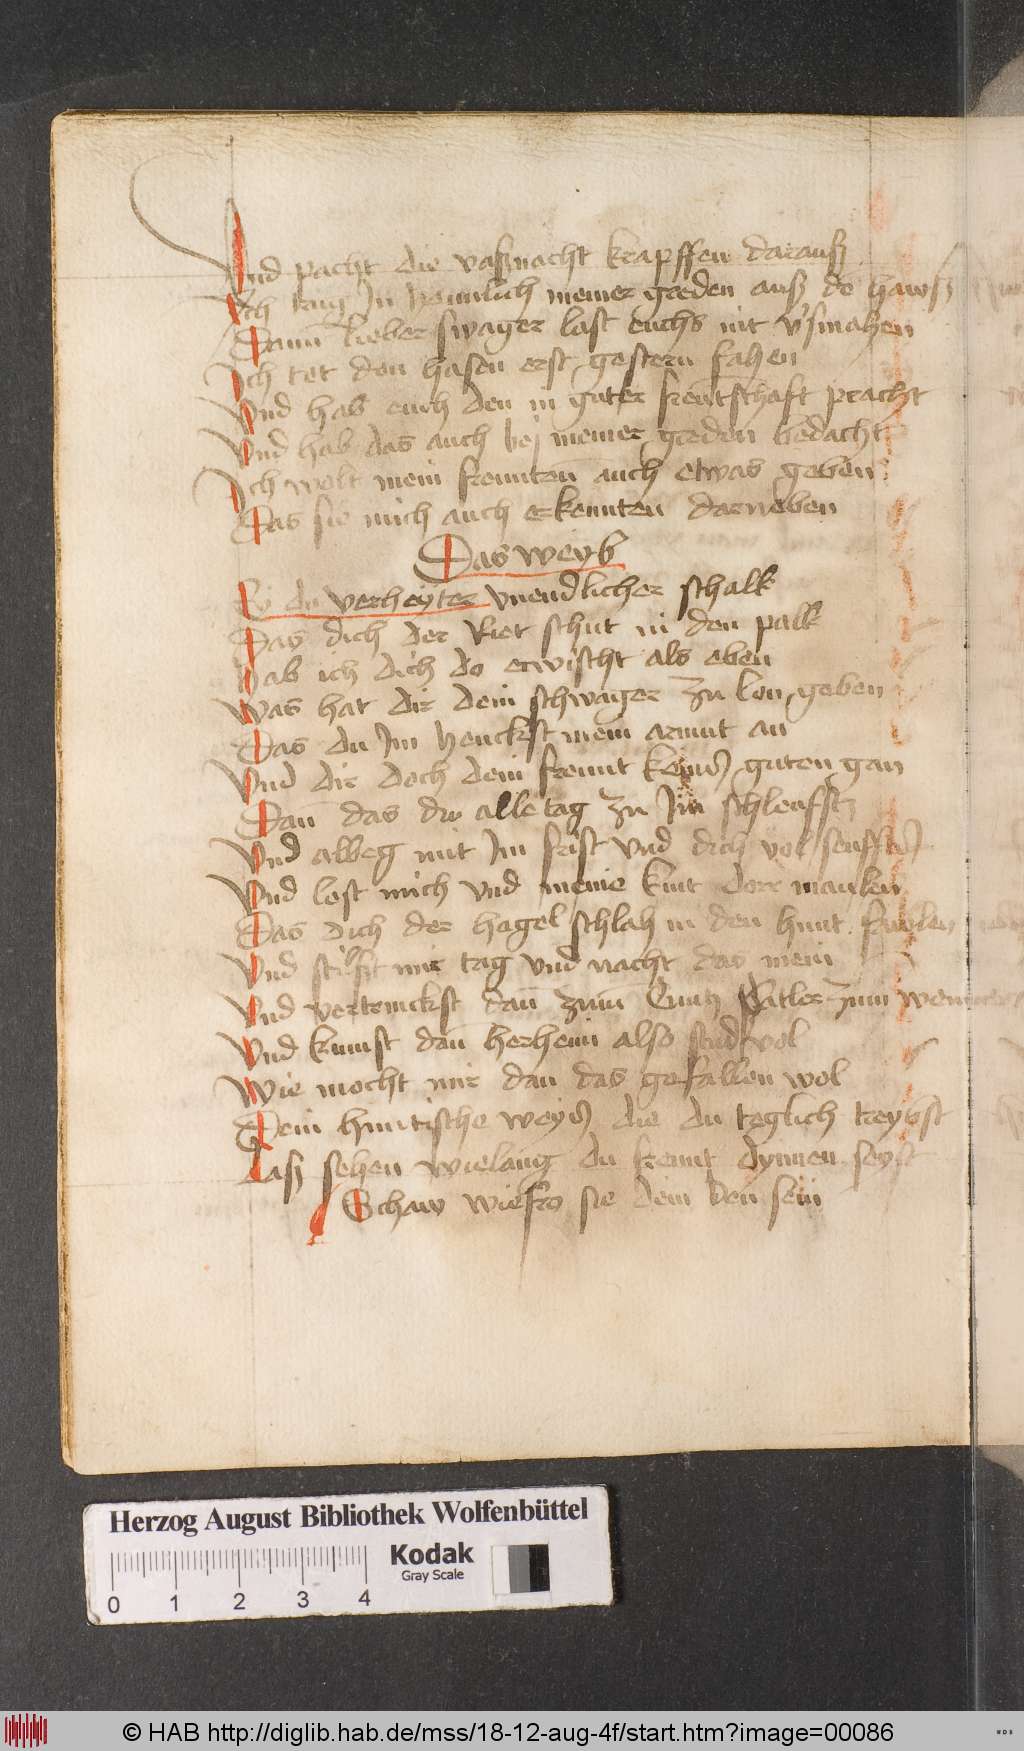 Und pacht die vaßnacht krapffen darauß
Ich trug In heimlich meiner greden auß de hawß
Darum lieber swager last euchs nit v'smahen
Ich tet den hasen erst gestern fahen
Und hab euch den in guter freutschaft pracht
Und hab das auch bej meiner greden bedacht
Ich wolt mein freunten auch etwas geben
Das sie mich auch erkennten darneben
Das weyb
Ey du verheyter vnendlicher schalk
Das dich der Riet schut in den palk
Hab ich dich do erwischt als eben
Was hat dir dein schwager zu lon geben
Das du Im henckst mein armut an
Und dir doch dein freunt keins guten gan
Dan das du alle tag zu Im schleuffst
Und albeg mit Im frist vnd dich vol seuffst
Und lest mich vnd meine kint dort maulen
Das dich der hagel schlah in den hunt
Und stilst mir tag vnd nacht das mein
Und vertrinckst dan zum Cuntz Satler zum wein
Und kumst dan herheim also stud vol
Wie mocht mir dan das gefallen wol
Dein huntische weys die du teglich treybst
Laß sehen wielang du freunt dynnen seyst
Schaw wiefro sie dein den sein
Herzog August Bibliothek Wolfenbüttel
Kodak
Gray Scale
0 1 2 3 4
© HAB http://diglib.hab.de/mss/18-12-aug-4f/start.htm?image=00086